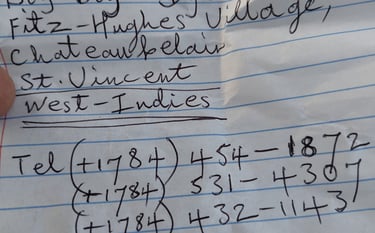 Fitz-Hughes Village,
Chateaubelair
St. Vincent
West-Indies
Tel (+1784) 454-1872
(+1784) 531-4307
(+1784) 432-1143